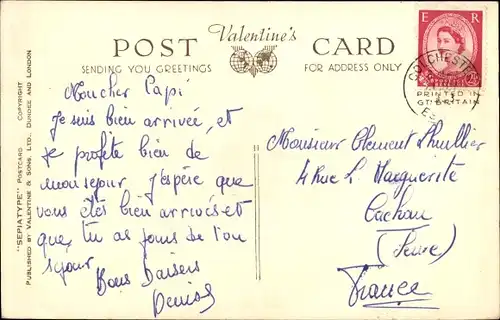 Valentine's
POST CARD
SENDING YOU GREETINGS
FOR ADDRESS ONLY
E R
COLCHESTER
ES
PRINTED IN
GT. BRITAIN
"SEPIATYPE" POSTCARD COPYRIGHT
PUBLISHED BY VALENTINE & SONS, LTD., DUNDEE AND LONDON
Mon cher Papi
Je suis bien arrivée, et
je profite bien de
mon sejour j'espère que
vous êtes bien arrivés et
que tu as joui de ton
sejour
Bons Baisers
Denise
Monsieur Clement
4 Rue L. Marguerite
Cachan
(Seine)
France